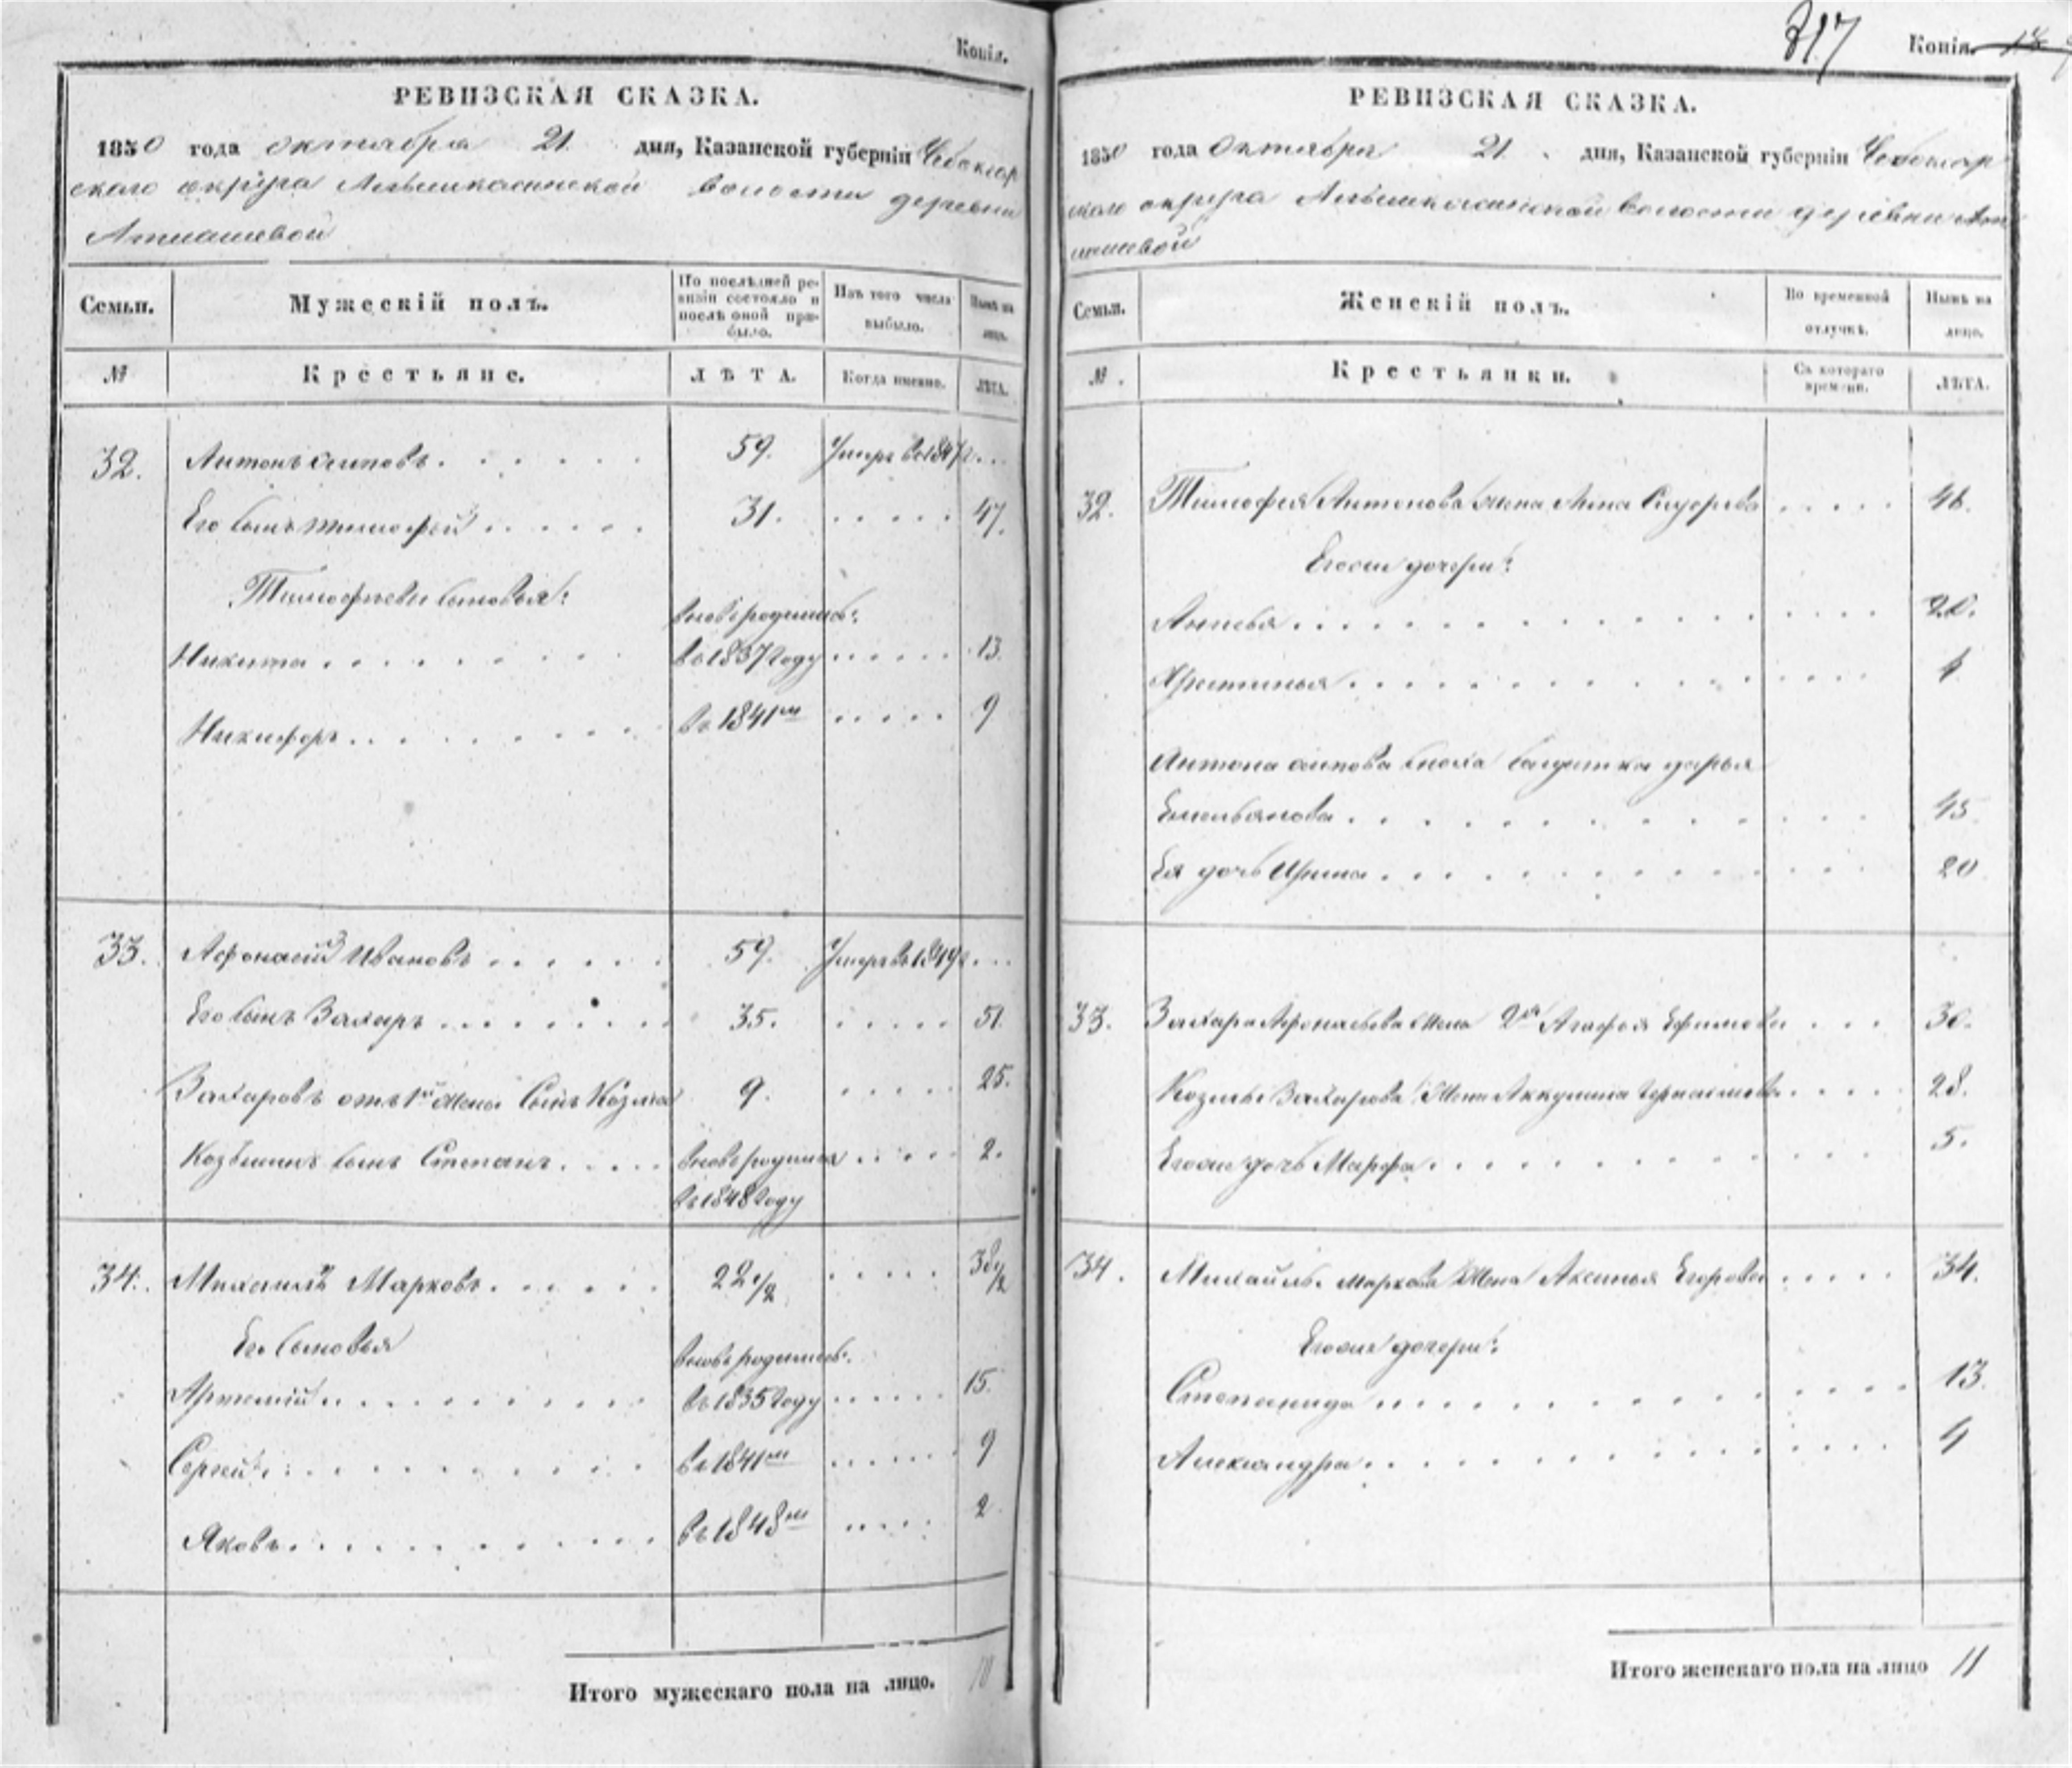 Копія.
РЕВИЗСКАЯ СКАЗКА.
1850 года октября 21 дня, Казанской губерніи Чебоксар
скаго округа волости деревни
Атлашевой
Семьи.
Мужескій полъ.
По послѣдней ре-
визіи состояло и
послѣ оной при-
было.
Изъ того числа
выбыло.
Нынѣ на
лицо.
№
Крестьяне.
ЛѢТА.
Когда именно.
ЛѢТА.
32. Антонъ Осиповъ 59. Умеръ въ 1847 г.
Его сынъ Тимофей 31. 47.
Тимофеевы сыновья:
вновь родились:
Никита въ 1837 году 13.
Никифоръ въ 1841м 9
33. Афонасій Ивановъ 59. Умеръ въ 1849 г.
Его сынъ Захаръ 35. 51.
Захаровъ отъ 1й жены сынъ Козма 9. 25.
Козьминъ сынъ Степанъ вновь родился 2.
въ 1848 году
34. Михаилъ Марковъ 22 1/2 38 1/2
Его сыновья
вновь родились:
Артемій въ 1835 году 15.
Сергей въ 1841м 9
Яковъ въ 1848м 2
Итого мужескаго пола на лицо. 10
317 Копія.
РЕВИЗСКАЯ СКАЗКА.
1850 года Октября 21 дня, Казанской губерніи Чебоксар
скаго округа волости деревни Атл
ашевой
Семьи.
Женскій полъ.
Во временной
отлучкѣ.
Нынѣ на
лицо.
№.
Крестьянки.
Съ котораго
времени.
ЛѢТА.
32. Тимофея Антонова жена Анна Сидорова 46.
Егоже дочери:
20.
Христинья 4
Антона Осипова сноха солдатка Дарья
Емельянова 45
Ея дочь Ирина 20
33. Захара Афонасьева жена 2я Агафья Ефимова 30.
Козьмы Захарова жена Аккулина 28.
Егоже дочь Марфа 5.
34. Михайлы Маркова жена Аксинья Егорова 34.
Егоже дочери:
Степанида 13.
Александра 4
Итого женскаго пола на лицо 11